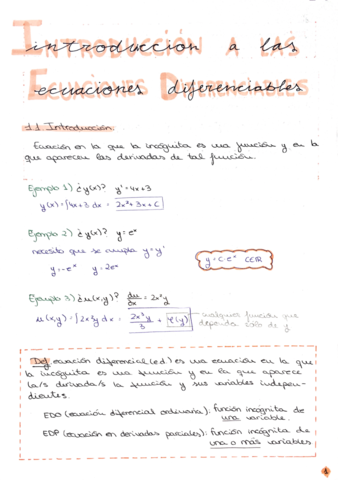 Introducción a las
Ecuaciones Diferenciables
1.1 Introducción:
Ecuación en la que la incógnita es una función y en la
que aparecen las derivadas de tal función.
Ejemplo 1) ¿y(x)? y' = 4x+3
y(x) = ∫4x+3 dx = 2x²+3x+C
Ejemplo 2) ¿y(x)? y = eˣ
necesito que se cumpla y=y'
y = -eˣ y = 2eˣ
y = C·eˣ C∈ℝ
Ejemplo 3) ¿u(x,y)? ∂u/∂x = 2x²y
u(x,y) = ∫2x²y dx = 2x³y/3 + φ(y)
cualquier función que
dependa sólo de y
Def ecuación diferencial (e.d.) es una ecuación en la que
la incógnita es una función y en la que aparece
la/s derivada/s la función y sus variables indepen-
dientes.
EDO (ecuación diferencial ordinaria): función incógnita de
una variable.
EDP (ecuación en derivadas parciales): función incógnita de
una o más variables
1